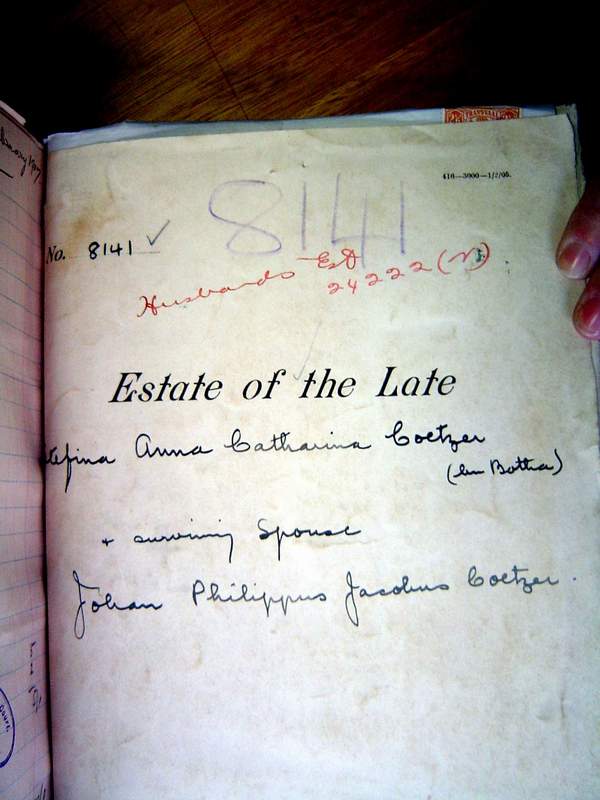 TRANSVAAL
416—3000—1/2/05.
8141
No. 8141
Husbands Est
24222 (N)
Estate of the Late
Stefina Anna Catharina Coetzer
(born Botha)
+ surviving Spouse
Johan Philippus Jacobus Coetzer.